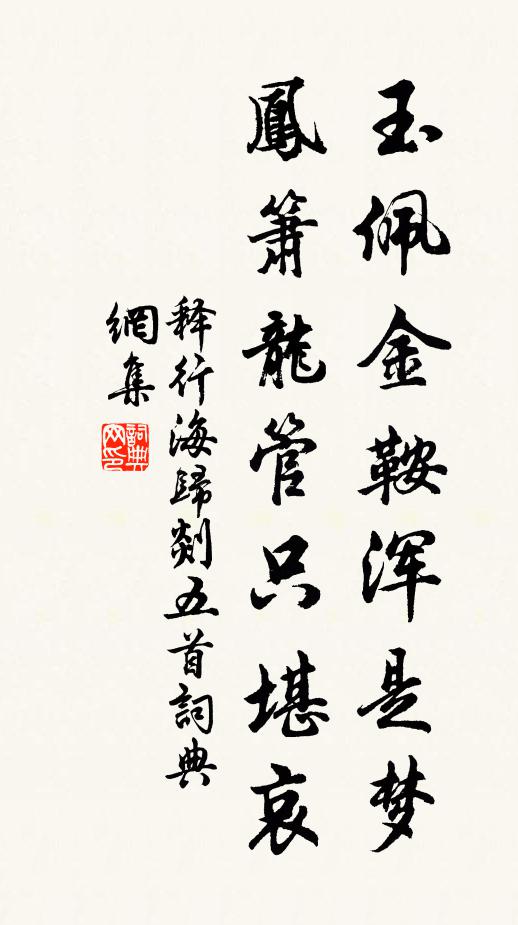 玉佩金鞍浑是梦
鳳簫龍管只堪哀
释行海歸剡五首詞典
網集
詞典网印